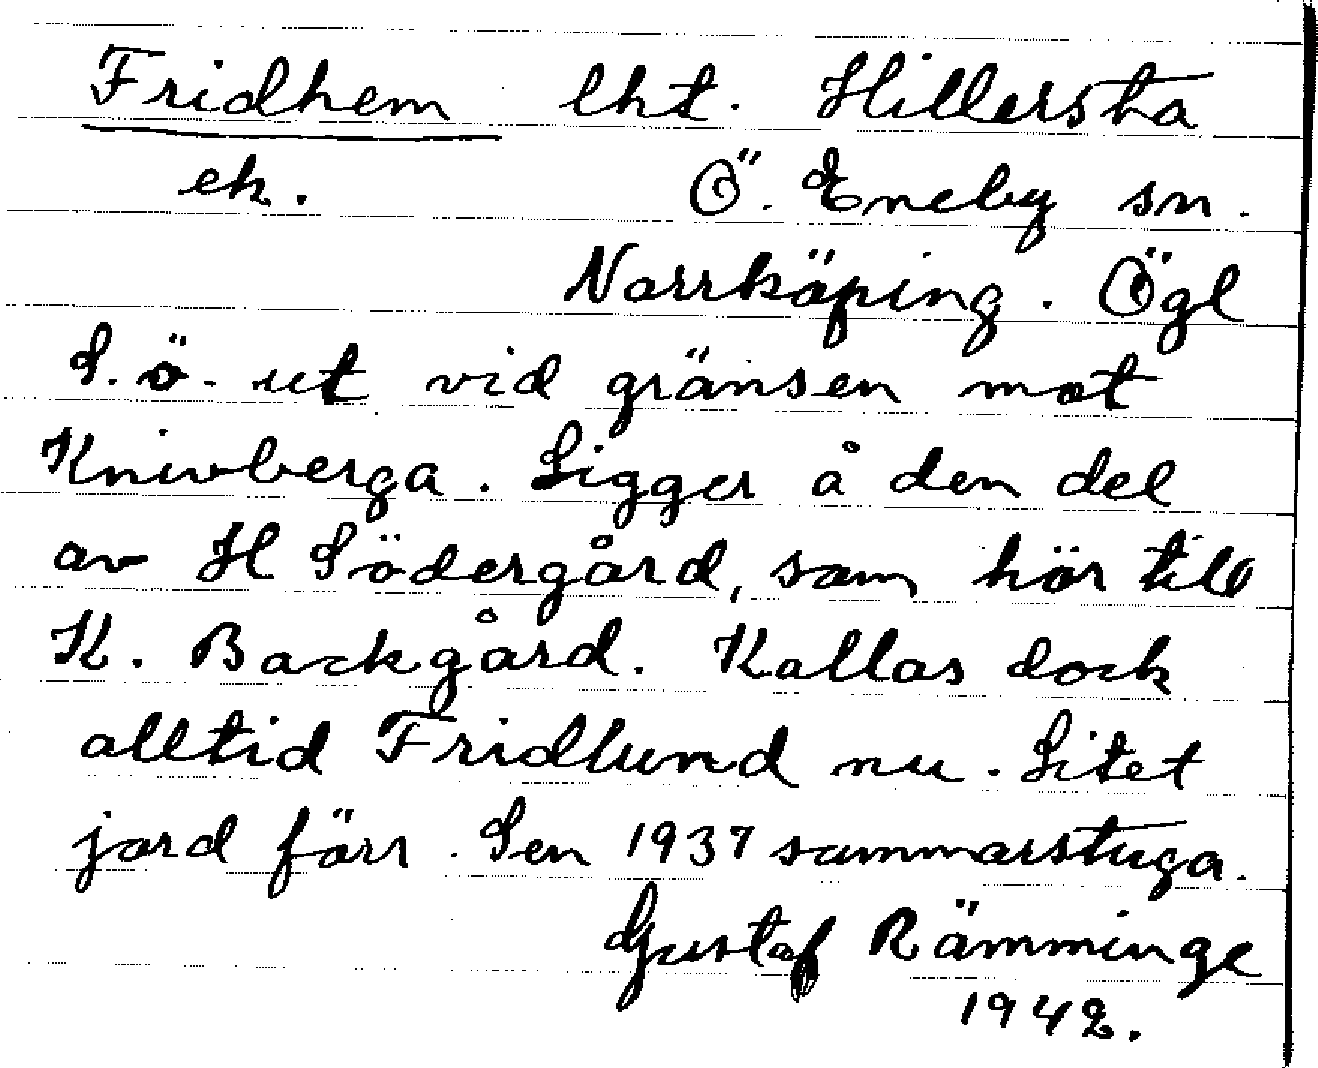 Fridhem lht. Hillersta
ek. Ö. Eneby sn.
Norrköping. Ögl
S. ö. ut vid gränsen mot
Knivberga. Ligger å den del
av H Södergård, som hör till
K. Backgård. Kallas dock
alltid Fridlund nu. Litet
jord förr. Sen 1937 sommarstuga.
Gustaf Rämminge
1942.